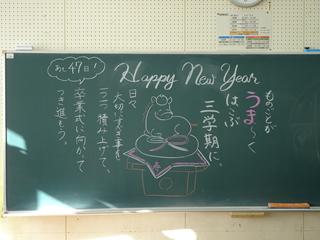 あと47日!
Happy New Year
ものごとが
うま〜く
はこぶ
三学期に。
日々
大切にすべき事を
一つ一つ積み上げて、
卒業式に向かって
つき進もう。